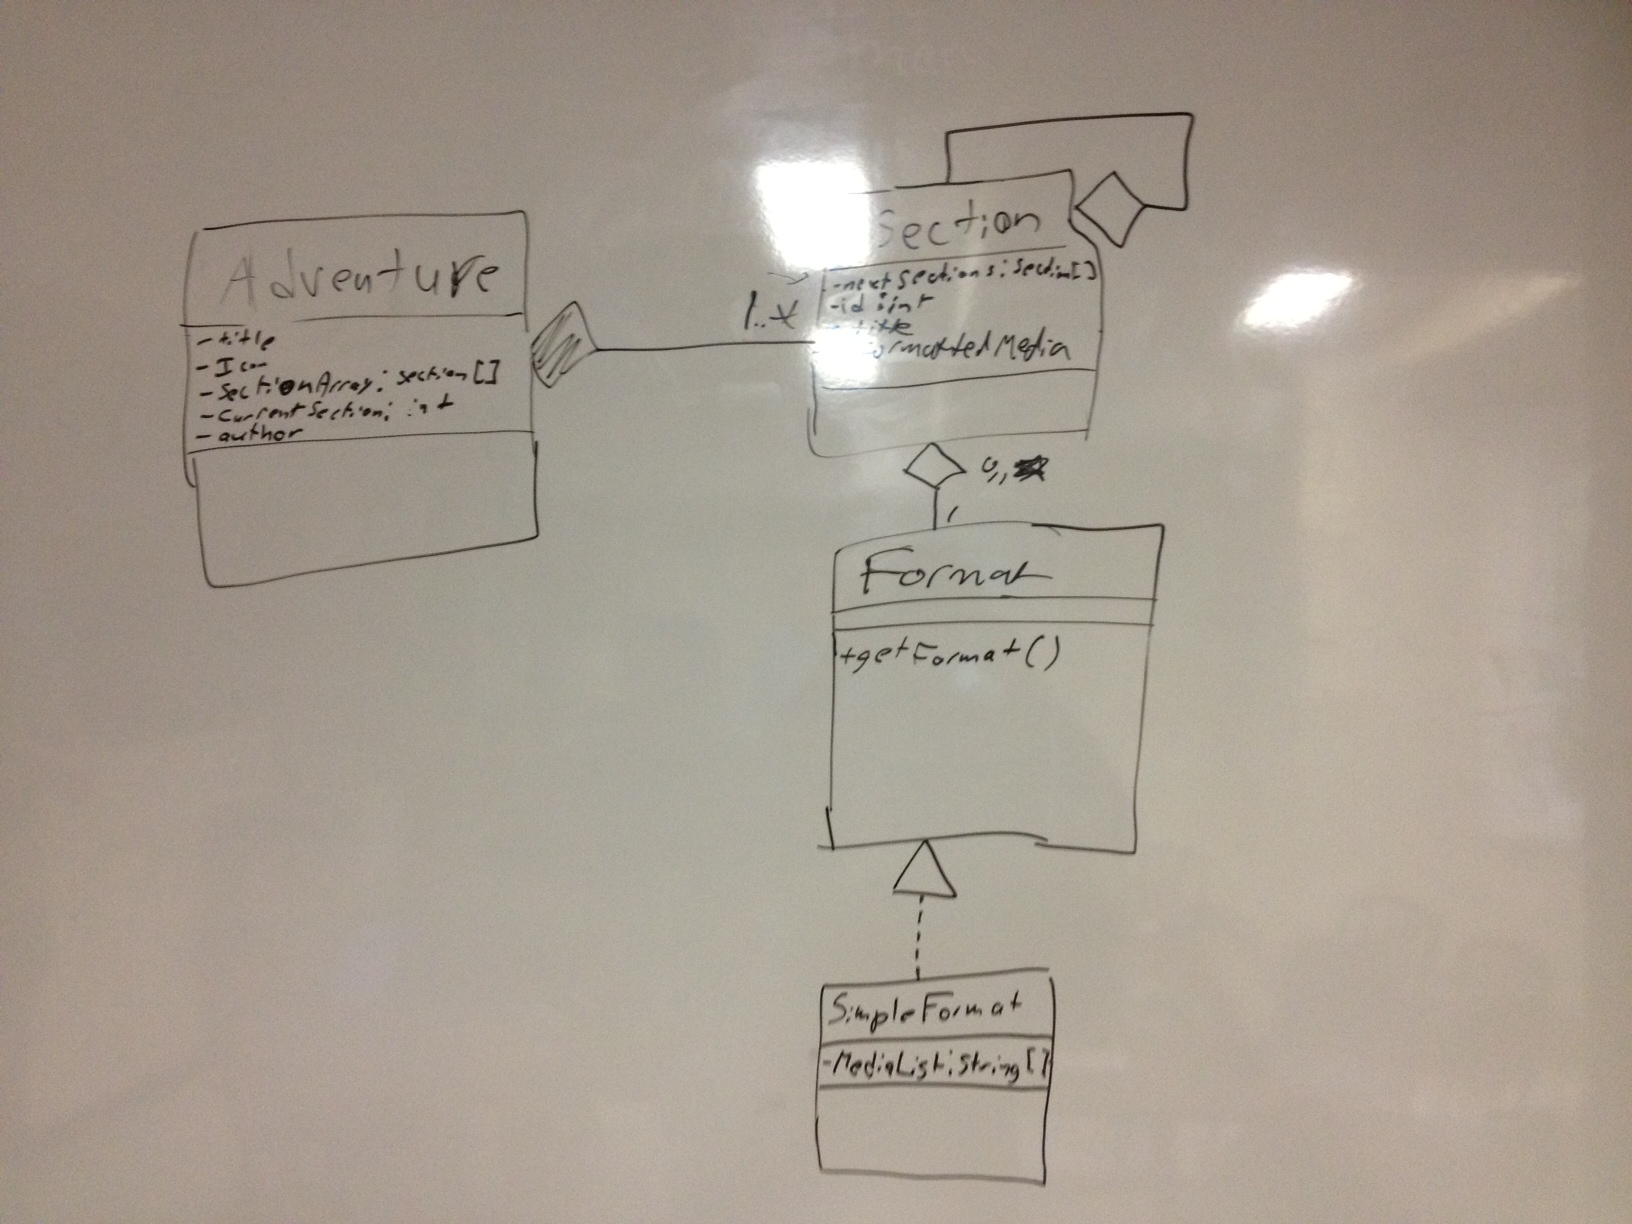 Adventure
- title
- Icon
- SectionArray: section[]
- CurrentSection: int
- author
1..*
Section
- nextSections: Section[]
- id: int
- title
FormattedMedia
0..
1
Format
+getFormat()
SimpleFormat
-MediaList: String[]